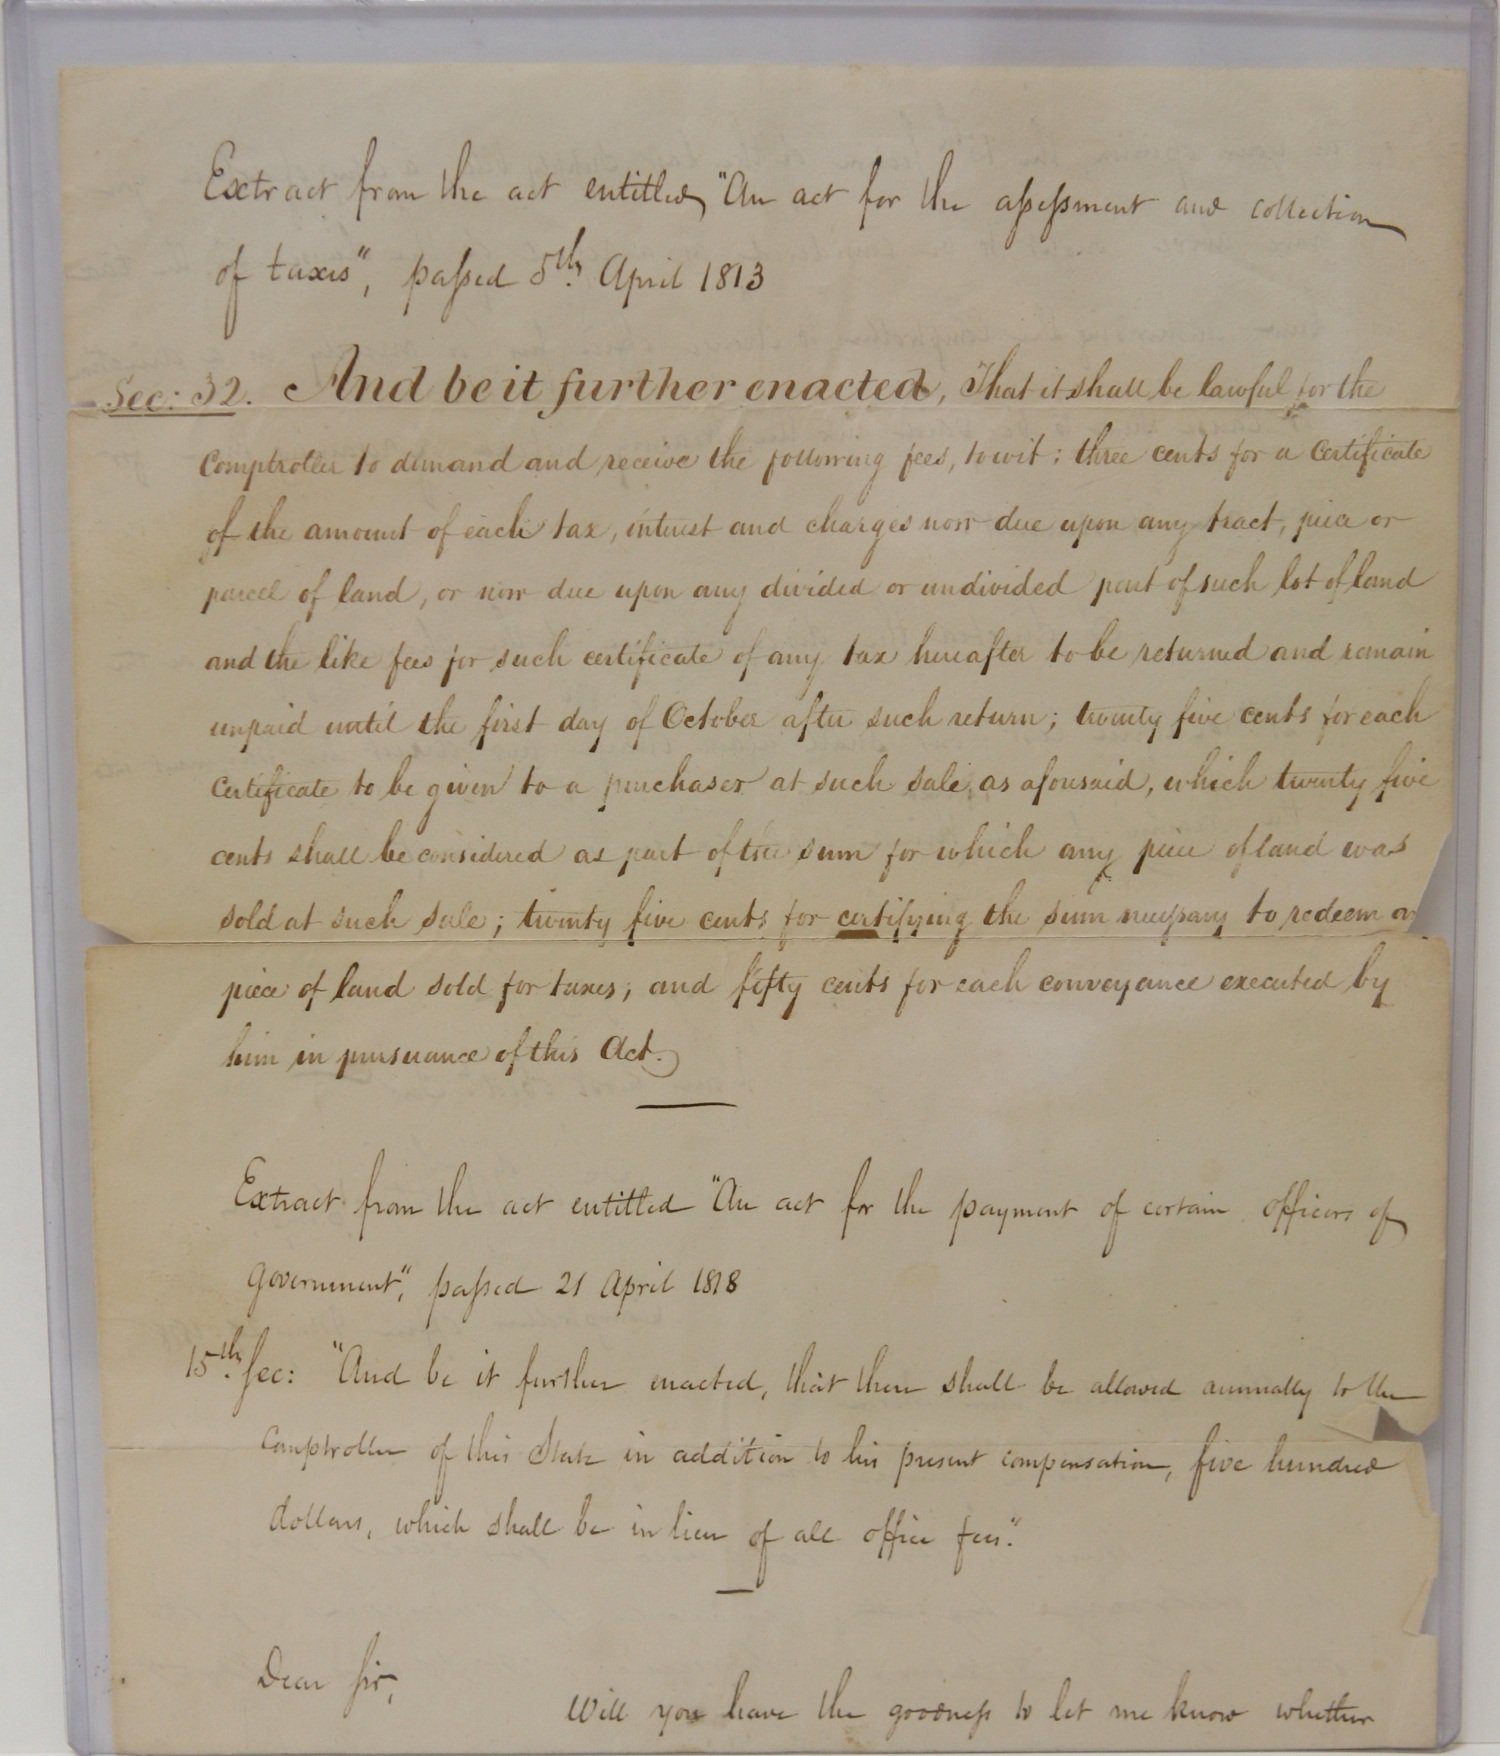 Extract from the act entitled, "An act for the assessment and collection
of taxes", passed 5th. April 1813
Sec: 32. And be it further enacted, That it shall be lawful for the
Comptroller to demand and receive the following fees, to wit: three cents for a Certificate
of the amount of each tax, interest and charges now due upon any tract, piece or
parcel of land, or now due upon any divided or undivided part of such lot of land
and the like fees for such certificate of any tax hereafter to be returned and remain
unpaid until the first day of October after such return; twenty five cents for each
Certificate to be given to a purchaser at such sale, as aforesaid, which twenty five
cents shall be considered as part of the sum for which any piece of land was
sold at such sale; twenty five cents for certifying the sum necessary to redeem
piece of land sold for taxes; and fifty cents for each conveyance executed by
him in pursuance of this Act.
Extract from the act entitled "An act for the payment of certain officers of
government", passed 21 April 1818
15th. Sec: "And be it further enacted, that there shall be allowed annually to the
Comptroller of this State in addition to his present compensation, five hundred
dollars, which shall be in lieu of all office fees."
Dear Sir,
Will you have the goodness to let me know whether